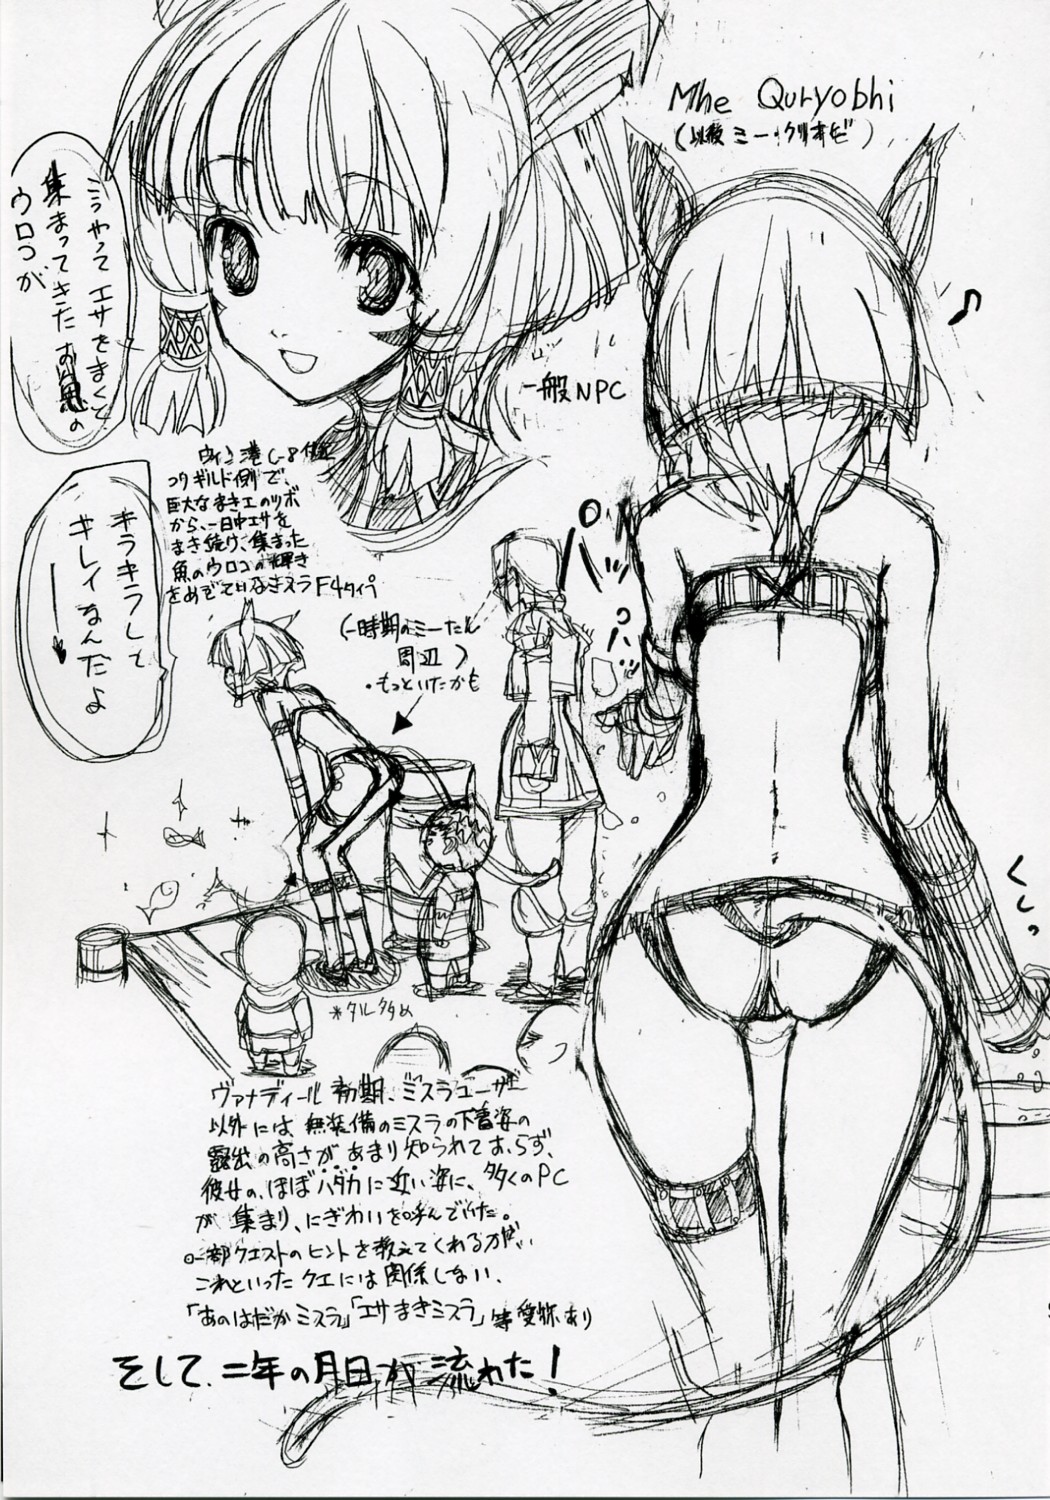 Mhe Quryobhi
(以後 ミー・クリオビ)
こうやって エサをまくと
集まってきた お魚の
ウロコが
一般NPC
ウィン港 C-8付近
つりギルド側で、
巨大なまきエのツボ
から、一日中エサを
まき続け、集まった
魚のウロコの輝き
をめでて F4タイプ
キラキラして
キレイなんだよ
(一時期のミーたん
周辺)
・もっといたかも
クしッ
*タル多め
ヴァナディール初期、ミスラユーザー
以外には無装備のミスラの下着姿の
露出の高さが、あまり知られておらず、
彼女の、ほぼハダカに近い姿に、多くのPC
が集まり、にぎわいを呼んでいた。
一部クエストのヒントを教えてくれる方だが
これといったクエには関係しない、
「あのはだかミスラ」「エサまきミスラ」等愛称あり
そして、二年の月日が流れた!